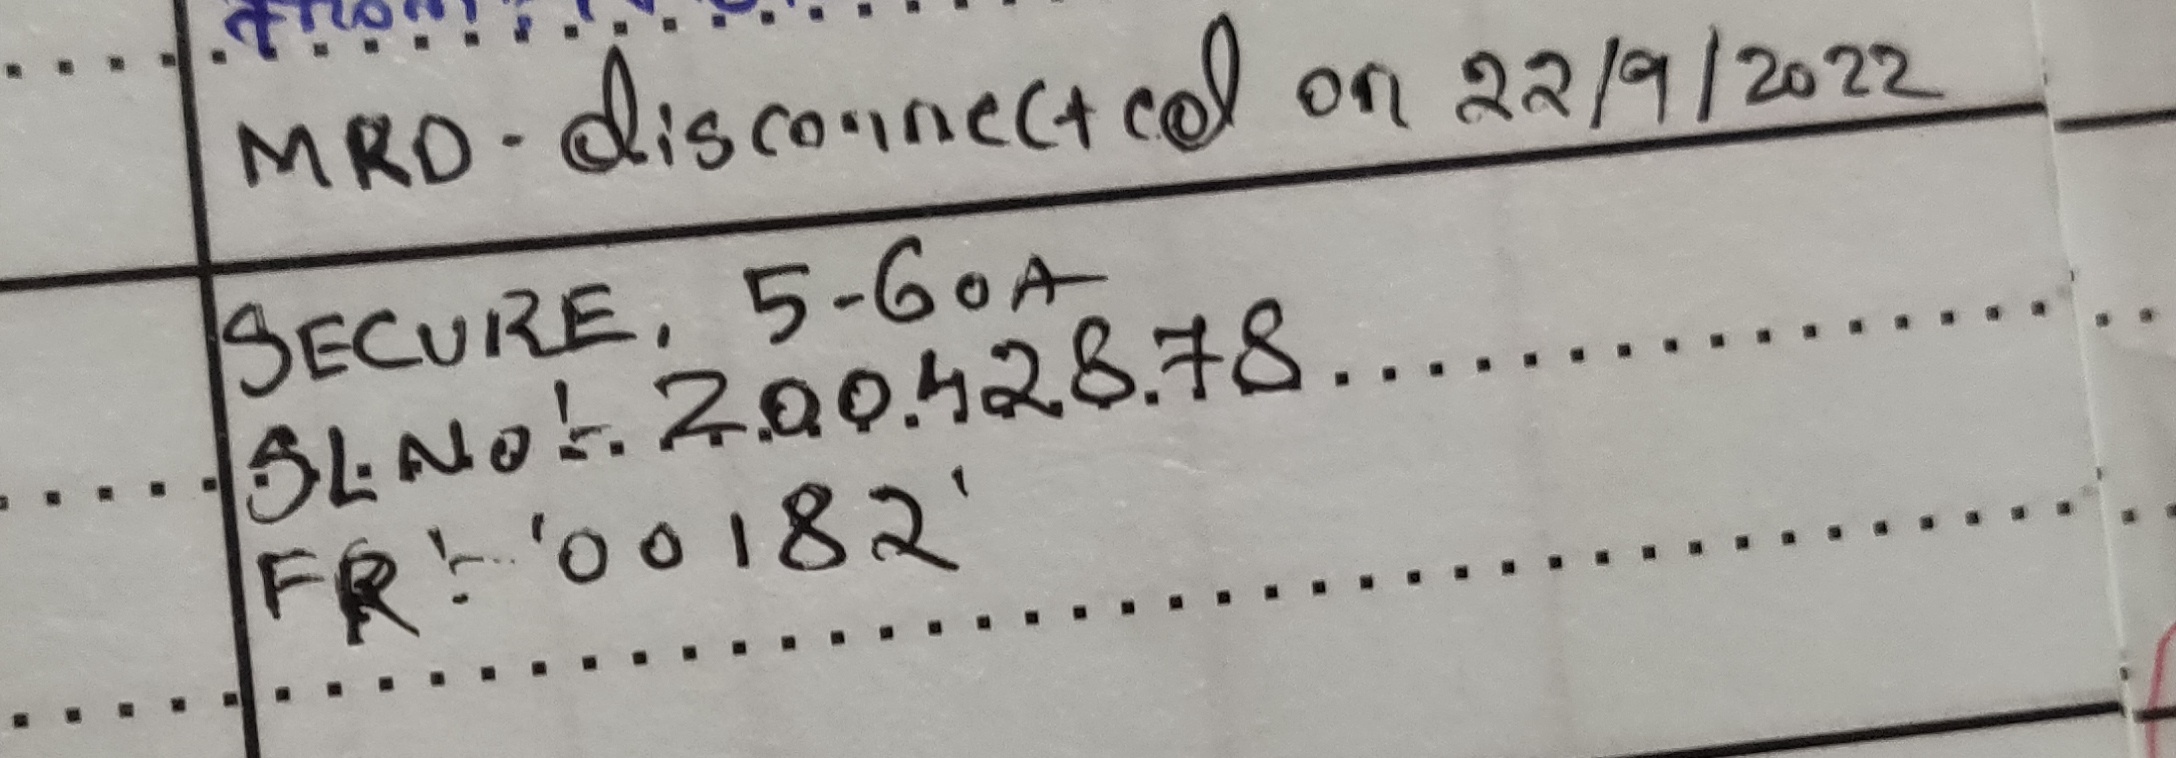 MRD - disconnected on 22/9/2022
SECURE, 5-60A
SL.NO:- 20042878
FR:- '00182'